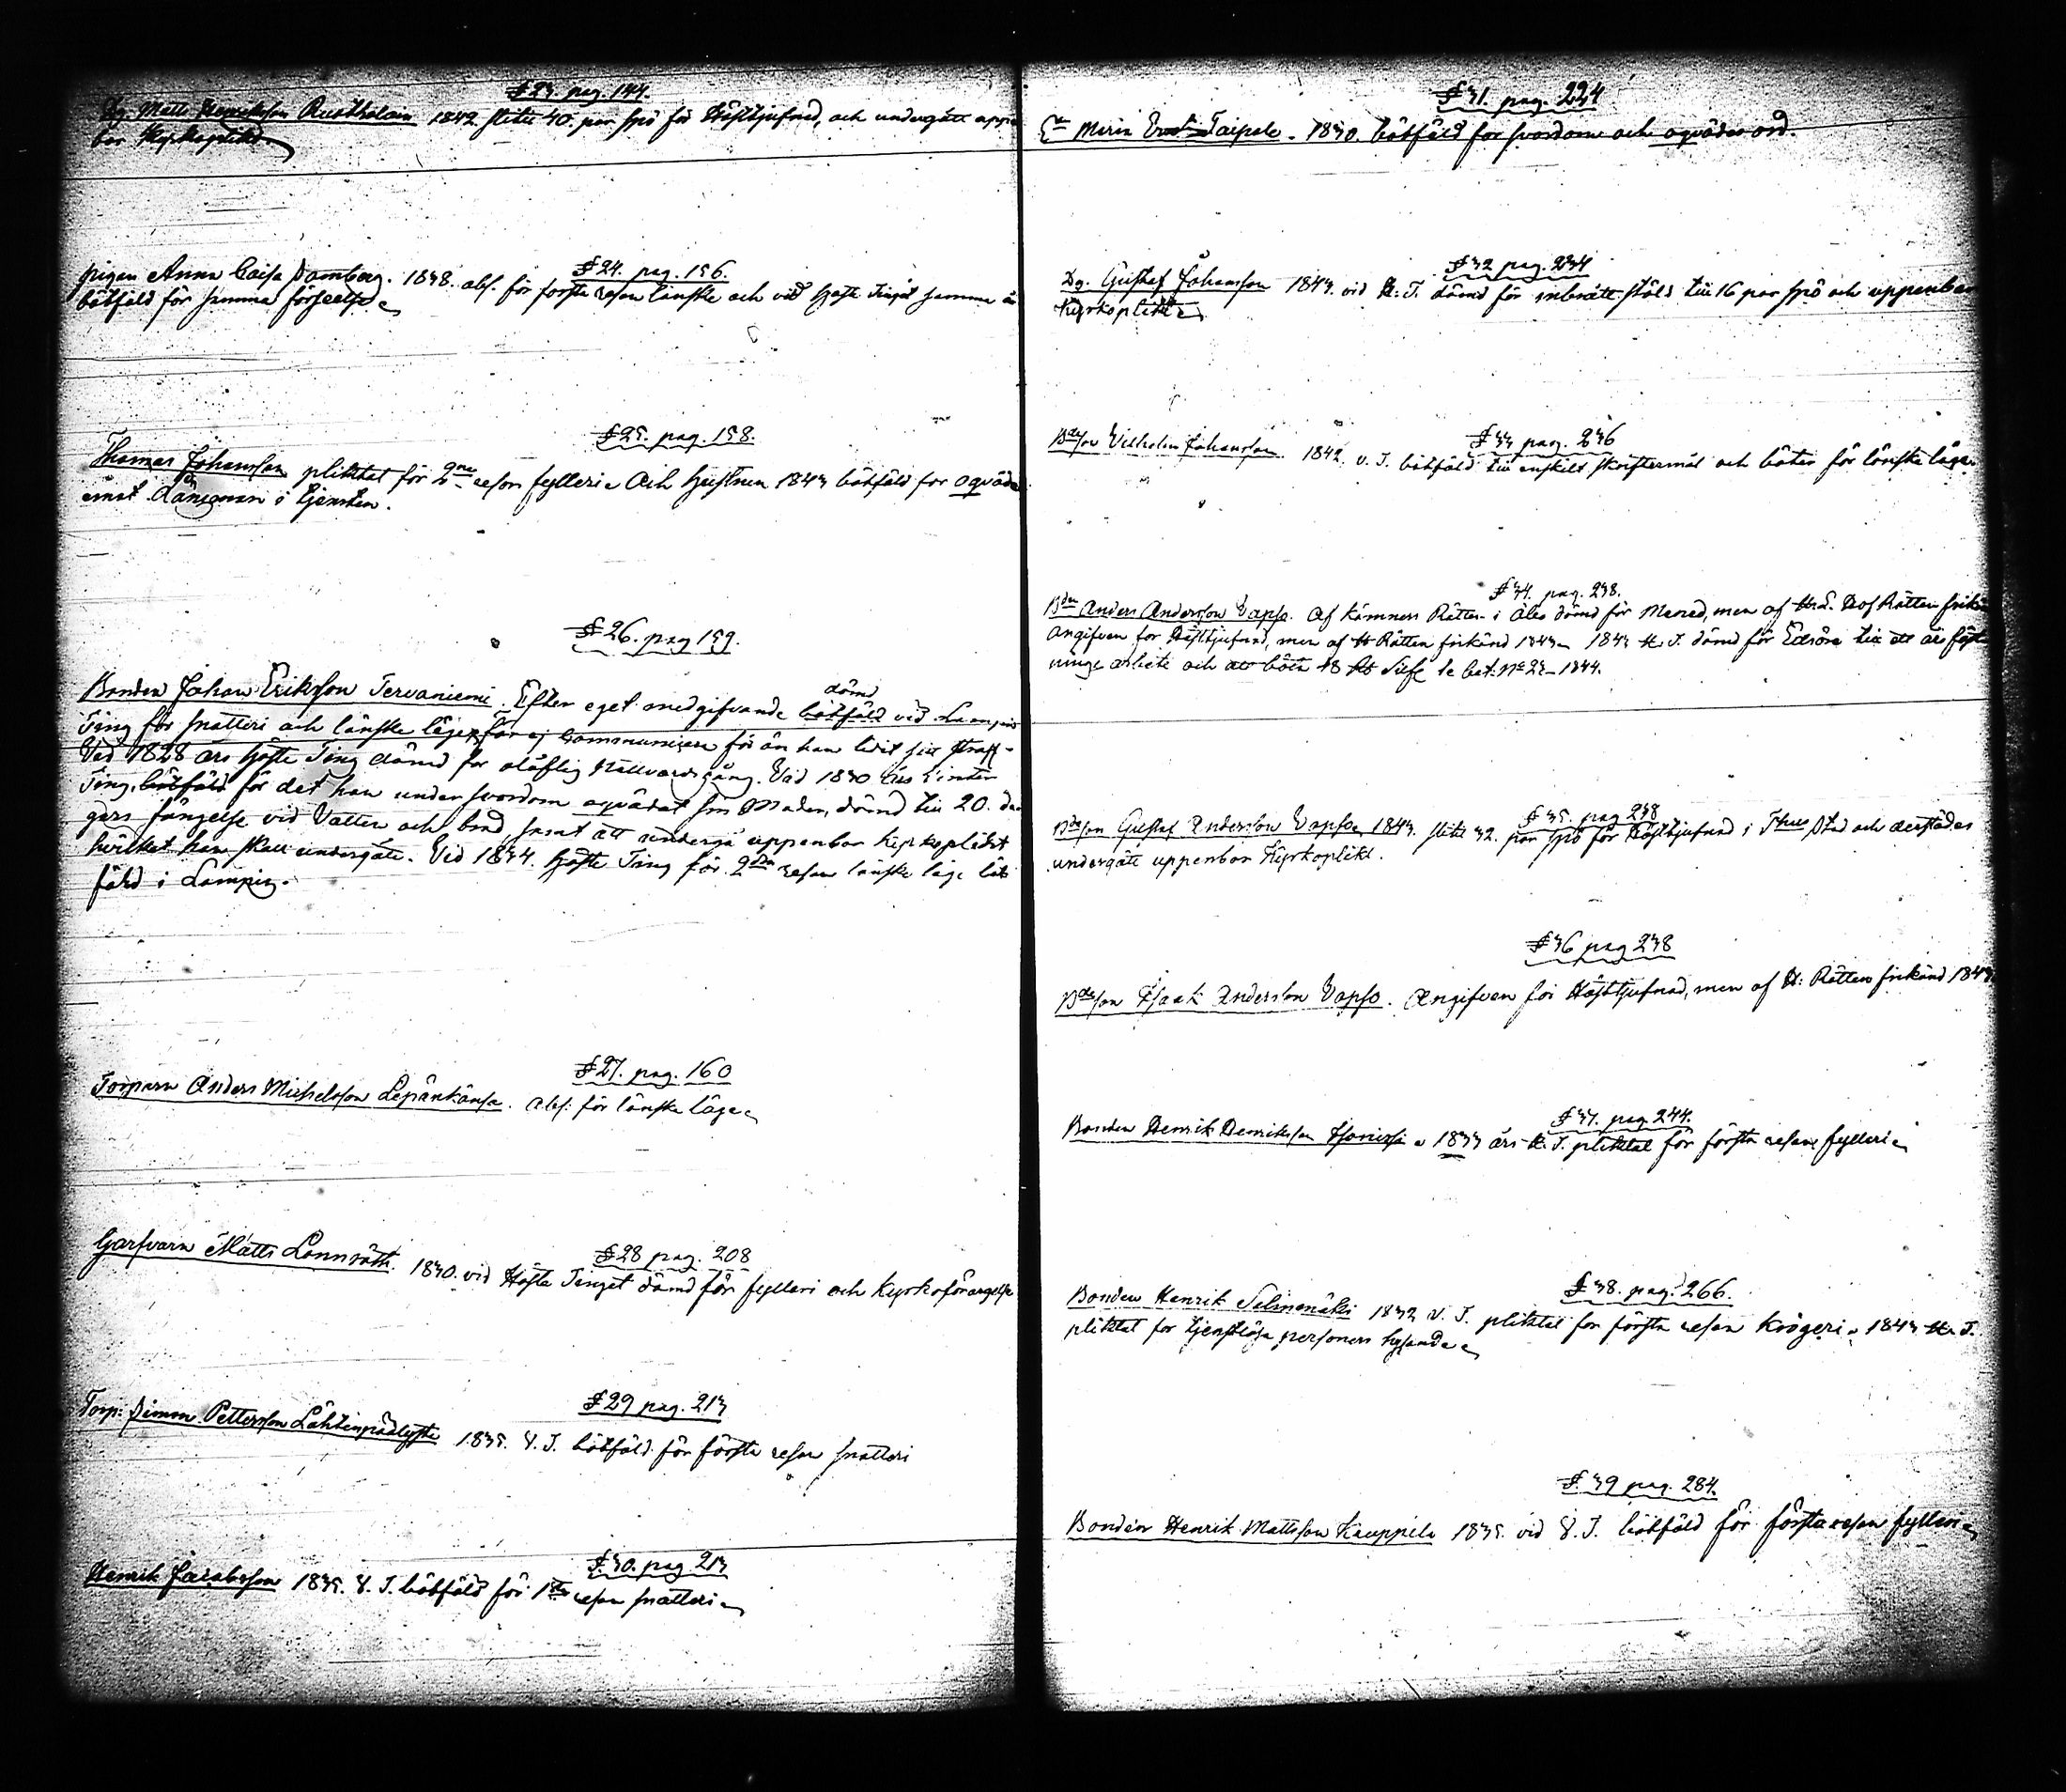 § 23. pag. 144.
Dg. Matts Henriksson Rusthola 1842 slitit 40. par spö för Hästtjufnad, och undergått uppen
bar Kyrkoplikt.
§ 24. pag. 156.
Pigan Anna Caisa Damberg. 1838. abs. för första resan lönske och vid Höste Tinget samma år
bötfäld för samma förseelse
§ 25. pag. 158.
Thomas Johansson pliktat för 2ne resor fylleri. Och Hustrun 1843 bötfäld for oqväde
emot Länsman i tjensten.
§ 26. pag 159.
Bonden Johan Eriksson Tervaniemi. Efter eget medgifvande bötfäld dömd vid Lampis
Ting för snatteri och lönske läger, får ej communicera för än han lidit sitt straff.
Vid 1828 års Höste Ting dömd för olåflig Nattvardsgång. Vid 1830 års Vinter
Ting, bötfäld för det han under svordom oqvädat sin Moder, dömd till 20. da
gars fängelse vid Vatten och bröd, samt att undergå uppenbar kyrkoplikt
hvilket han skall undergått. Vid 1834. Höste Ting för 2dra resan lönske läge böt
fäld i Lampis.
§ 27. pag. 160
Torparn Anders Michelsson Lepänkänsä. abs. för lönske läge
§ 28 pag. 208
Garfvarn Matts Lönnroth. 1830. vid Höste Tinget dömd för fylleri och Kyrkoförargelse
§ 29 pag. 213
Torp: Simon Pettersson Lähtinpädlyste 1835. V. T. bötfäld för första resan snatteri
§ 30. pag 213
Henrik Jacobsson 1835. V. T. bötfäld för 1sta resan snatteri
§ 31. pag. 224
Taipale. 1830. bötfäld för svordom och oqvädes ord.
§ 32 pag. 234
Dg. Gustaf Johansson 1843. vid H. T. dömd för inbrotts stöld till 16 par spö och uppenbar
Kyrkoplikt
§ 33 pag. 236
Bdeson Vilhelm Johansson. 1842. v. T. bötfäld till enskilt skriftermål och böter för lönske läge.
§ 34. pag. 238.
Bden Anders Andersson Vapso. Af Kämners Rätten i Åbo dömd för Mened, men af Hof Rätten frikänd
Angifven for Hästtjufnad, men af H Rätten frikänd 1843. 1843 H. T. dömd för Edsöre till ett års fäst
nings arbete och att böta 48 Silfv. se bet. No 23 – 1844.
§ 35. pag 238
Bdeson Gustaf Andersson Vapso 1843. slitit 32. par spö för Hästtjufnad i Thus Stad och derstädes
undergått uppenbar Kyrkoplikt.
§ 36 pag 238
Bdeson Isaak Andersson Vapso. Angifven för Hästtjufnad, men af H: Rätten frikänd 1843
§ 37. pag. 244.
Bonden Henrik Henriksson 1833 års H. T. pliktat för första resan fylleri
§ 38. pag. 266.
Bonden Henrik Selmenäki 1832 V. T. pliktat for första resan Krögeri. 1843 H. T.
pliktat for tjenstlösa personers hysande
§ 39 pag. 284.
Bonden Henrik Mattsson Kauppila 1835. vid V. T. bötfäld för första resan fylleri